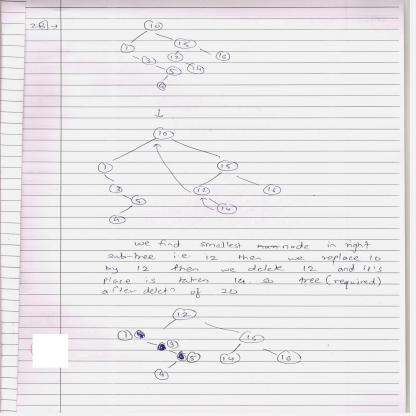 28) →
10
1 15
3 12 16
5 14
4
↓
10
1 15
3 12 16
5 14
4
we find smallest node in right
sub-tree i.e 12 then we replace 10
by 12 then we delete 12 and it's
place is taken 14 so tree (required)
after delet? of 20
12
1 15
3 14 16
5
4